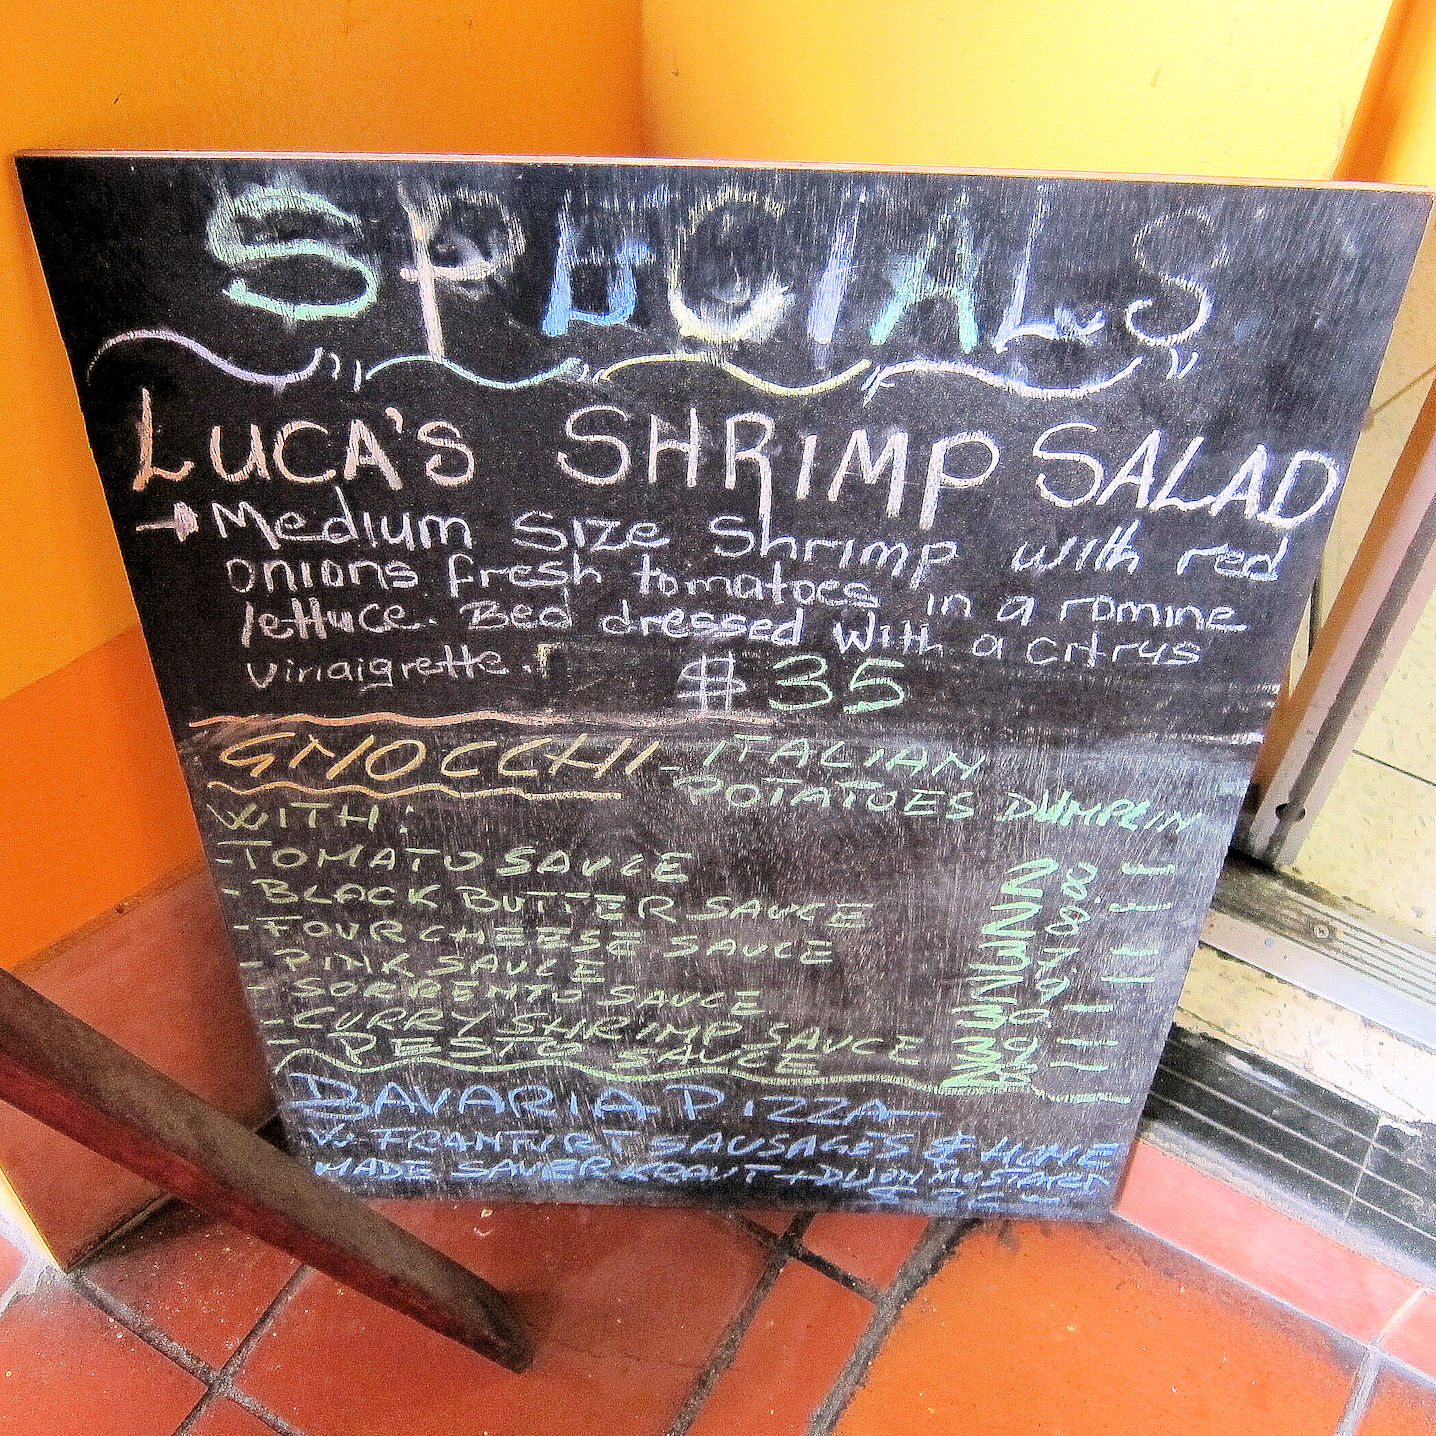 SPECIALS
LUCA'S SHRIMP SALAD
→ Medium size Shrimp with red
onions fresh tomatoes in a romine
lettuce. Bed dressed with a citrus
vinaigrette. $35
GNOCCHI - ITALIAN
POTATOES DUMPLIN
WITH:
-TOMATO SAUCE 28
-BLACK BUTTER SAUCE 28
-FOUR CHEESE SAUCE
-PINK SAUCE
-SORRENTO SAUCE
-CURRY SHRIMP SAUCE 39
- PESTO SAUCE
BAVARIA PIZZA
W FRANFURT SAUSAGES & HOME
MADE SAUERKRAUT + DIJON MUSTARD